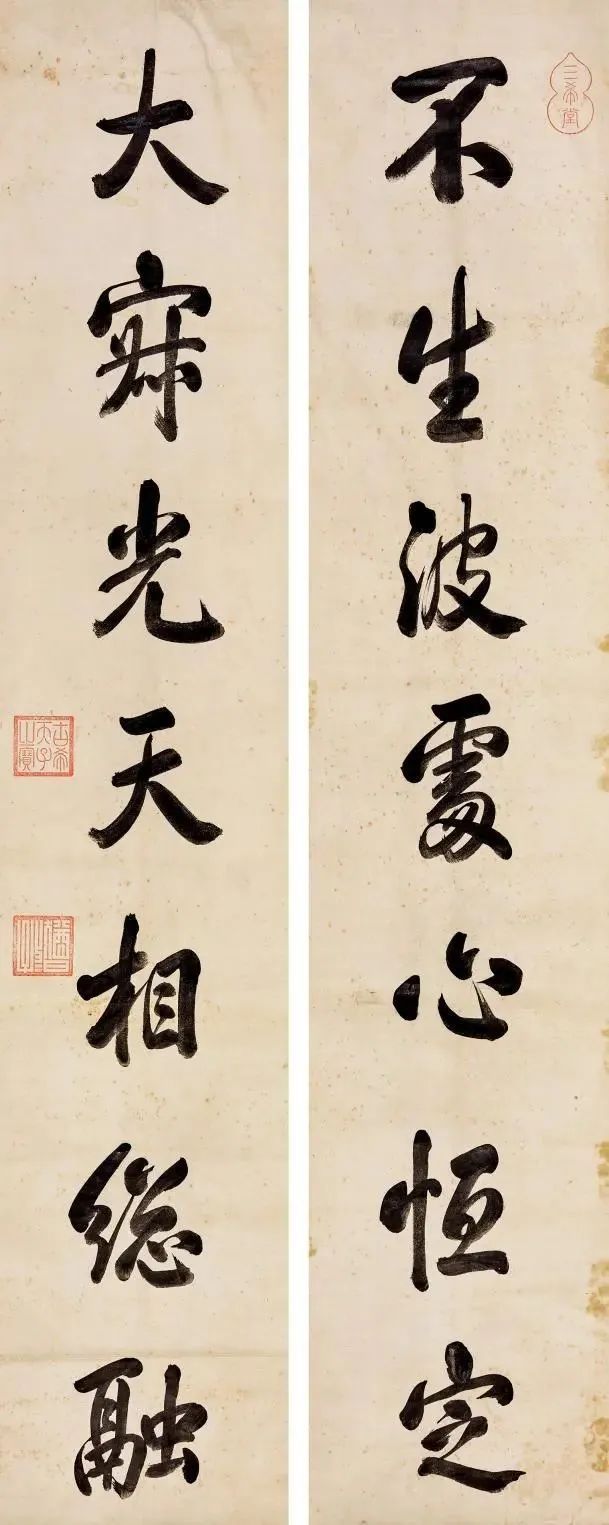 三希堂
不生波處心恒定
大寂光天相總融
古希天子之寶